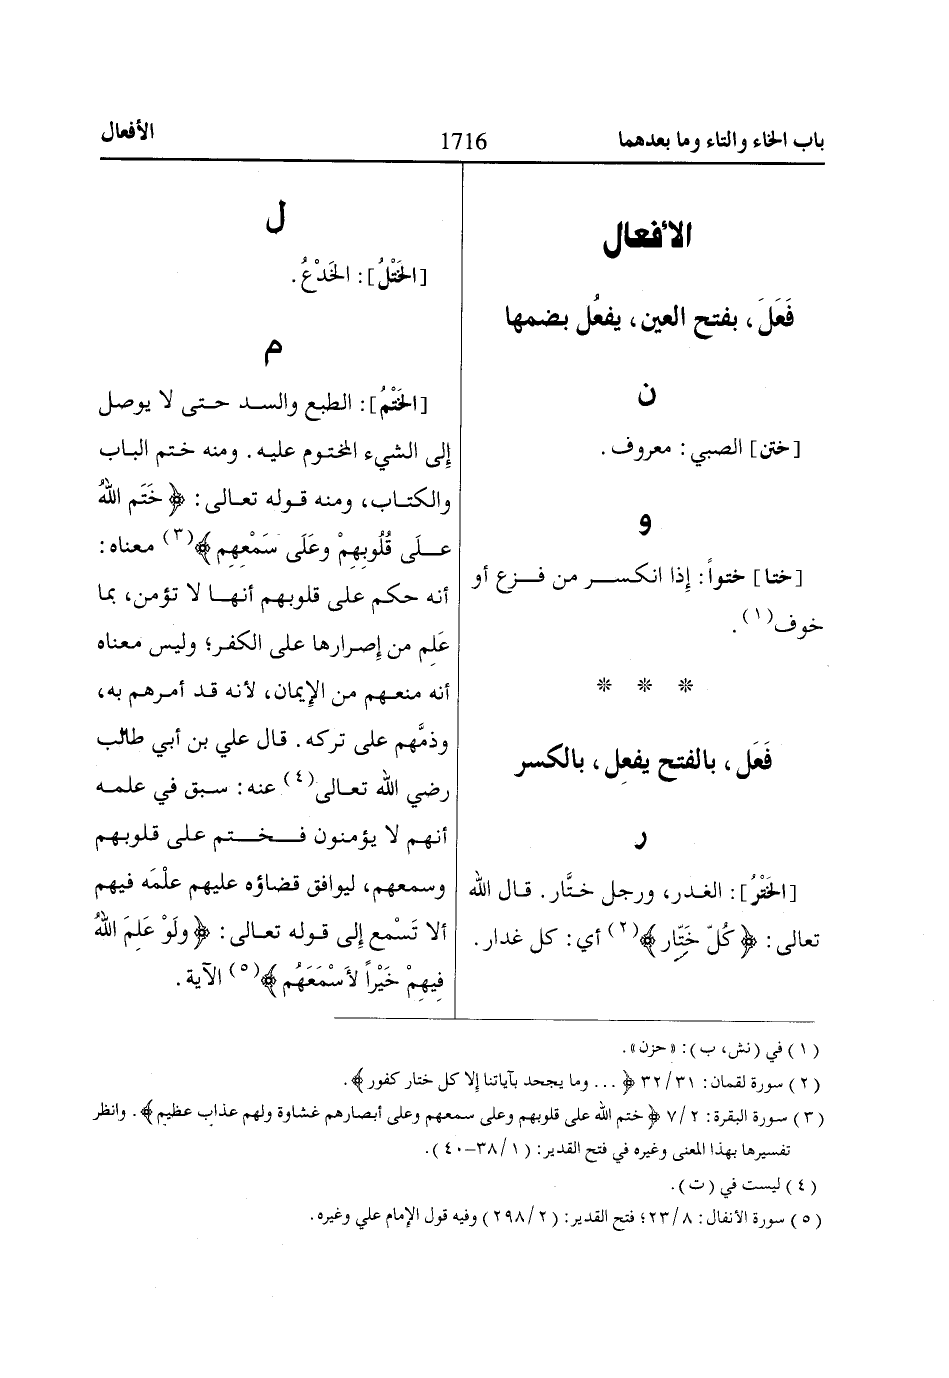 باب الخاء والتاء وما بعدهما
1716
الأفعال
الأفعال
فَعَلَ، بفتح العين، يفعُل بضمها
ن
[ختن] الصبي: معروف.
و
[ختا] ختواً: إذا انكسر من فزع أو
خوف(١).
* * *
فَعَل، بالفتح يفعِل، بالكسر
ر
[الخَتْرُ]: الغدر، ورجل ختَّار. قال الله
تعالى: ﴿كُلّ خَتِّار﴾(٢) أي: كل غدار.
ل
[الخَتْلُ]: الخَدْعُ.
م
[الخَتْمُ]: الطبع والسد حتى لا يوصل
إلى الشيء المختوم عليه. ومنه ختم الباب
والكتاب، ومنه قوله تعالى: ﴿خَتَم اللهُ
علَى قُلُوبِهِمْ وعَلَى سَمْعِهِم﴾(٣) معناه:
أنه حكم على قلوبهم أنها لا تؤمن، بما
عَلِم من إصرارها على الكفر؛ وليس معناه
أنه منعهم من الإيمان، لأنه قد أمرهم به،
وذمَّهم على تركه. قال علي بن أبي طالب
رضي الله تعالى(٤) عنه: سبق في علمه
أنهم لا يؤمنون فختم على قلوبهم
وسمعهم، ليوافق قضاؤه عليهم علْمَه فيهم
ألا تَسْمع إلى قوله تعالى: ﴿ولَوْ عَلِمَ اللهُ
فِيهِمْ خَيْراً لأَسْمَعَهُم﴾(٥) الآية.
(١) في (نش، ب): «حزن».
(٢) سورة لقمان: ٣٢/٣١ ﴿... وما يجحد بآياتنا إلا كل ختار كفور﴾.
(٣) سورة البقرة: ٧/٢ ﴿ختم الله على قلوبهم وعلى سمعهم وعلى أبصارهم غشاوة ولهم عذاب عظيم﴾. وانظر
تفسيرها بهذا المعنى وغيره في فتح القدير: (٣٨/١-٤٠).
(٤) ليست في (ت).
(٥) سورة الأنفال: ٢٣/٨؛ فتح القدير: (٢٩٨/٢) وفيه قول الإمام علي وغيره.